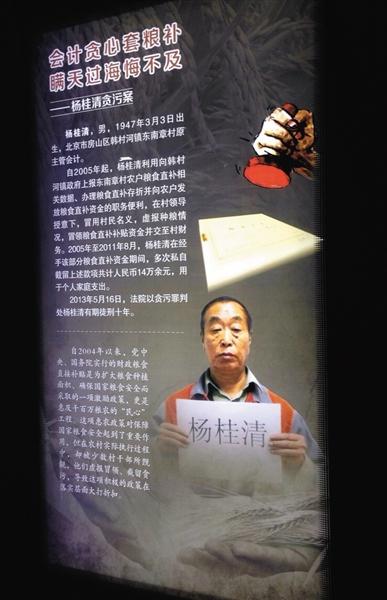 会计贪心套粮补
瞒天过海悔不及
——杨桂清贪污案
杨桂清，男，1947年3月3日出
生，北京市房山区韩村河镇东南章村原
主管会计。
自2005年起，杨桂清利用向韩村
河镇政府上报东南章村农户粮食直补相
关数据、办理粮食直补存折并向农户发
放粮食直补资金的职务便利，在村领导
授意下，冒用村民名义，虚报种粮情
况，冒领粮食直补补贴资金并交至村财
务。2005年至2011年8月，杨桂清在经
手该部分粮食直补资金期间，多次私自
截留上述款项共计人民币14万余元，用
于个人家庭支出。
2013年5月16日，法院以贪污罪判
处杨桂清有期徒刑十年。
自2004年以来，党中
央、国务院实行的财政粮食
直接补贴是为扩大粮食种植
面积、确保国家粮食安全而
采取的一项激励政策，更是
惠及千百万粮农的“民心”
工程。这项惠农政策对保障
国家粮食安全起到了重要作
用，但在农村实际执行过程
中，却被少数村干部所觊
觎，他们虚报冒领、截留贪
污，导致这项积极的政策在
落实层面大打折扣。
杨桂清